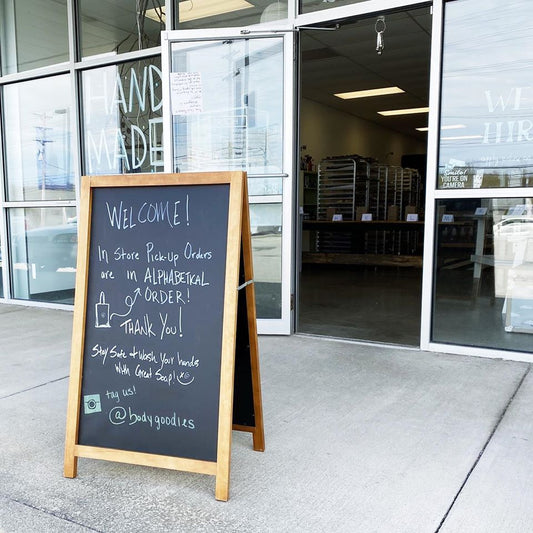 HAND
MADE
WE
HIR
Smile!
YOU'RE ON
CAMERA
WELCOME!
In Store Pick-Up Orders
are in ALPHABETICAL
ORDER!
THANK YOU!
Stay Safe + Wash Your hands
With Great Soap!
tag us!
@bodygoodies